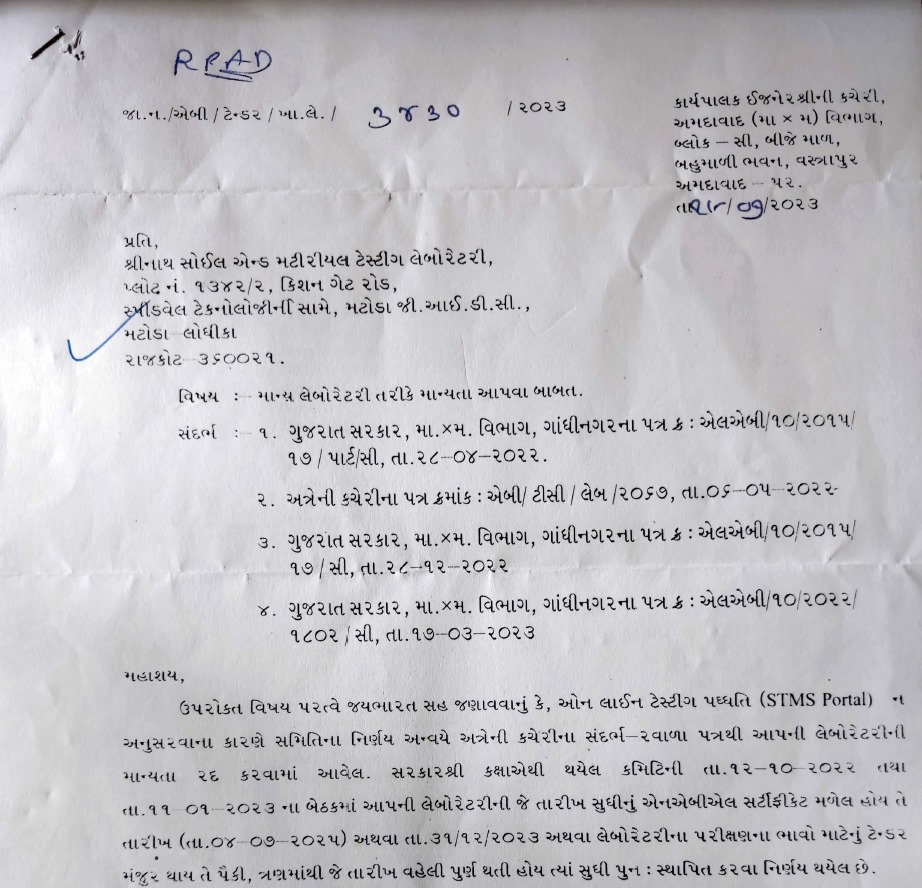 RPAD
જા.ન./એબી/ટેન્ડર/ખા.લે./ ૩૪૩૦ /૨૦૨૩
કાર્યપાલક ઈજનેરશ્રીની કચેરી,
અમદાવાદ (મા × મ) વિભાગ,
બ્લોક – સી, બીજે માળ,
બહુમાળી ભવન, વસ્ત્રાપુર
અમદાવાદ – ૫૨.
તા. /૦૭/૨૦૨૩
પ્રતિ,
શ્રીનાથ સોઈલ એન્ડ મટીરીયલ ટેસ્ટીગ લેબોરેટરી,
પ્લોટ નં. ૧૩૪૨/૨, કિશન ગેટ રોડ,
સ્પીડવેલ ટેકનોલોજીની સામે, મટોડા જી.આઈ.ડી.સી.,
મટોડા લોધીકા
રાજકોટ ૩૬૦૦૨૧.
વિષય :– માન્ય લેબોરેટરી તરીકે માન્યતા આપવા બાબત.
સંદર્ભ :– ૧. ગુજરાત સરકાર, મા.×મ. વિભાગ, ગાંધીનગરના પત્ર ક્ર : એલએબી/૧૦/૨૦૧૫/
૧૭/ પાર્ટ/સી, તા.૨૮–૦૪–૨૦૨૨.
૨. અત્રેની કચેરીના પત્ર ક્રમાંક : એબી/ ટીસી / લેબ /૨૦૬૭, તા.૦૬–૦૫–૨૦૨૨-
૩. ગુજરાત સરકાર, મા.×મ. વિભાગ, ગાંધીનગરના પત્ર ક્ર : એલએબી/૧૦/૨૦૧૫/
૧૭/ સી, તા.૨૮–૧૨–૨૦૨૨
૪. ગુજરાત સરકાર, મા.×મ. વિભાગ, ગાંધીનગરના પત્ર ક્ર : એલએબી/૧૦/૨૦૨૨/
૧૮૦૨ / સી, તા.૧૭–૦૩–૨૦૨૩
મહાશય,
ઉપરોકત વિષય પરત્વે જયભારત સહ જણાવવાનું કે, ઓન લાઈન ટેસ્ટીગ પધ્ધતિ (STMS Portal) ન
અનુસરવાના કારણે સમિતિના નિર્ણય અન્વયે અત્રેની કચેરીના સંદર્ભ–૨વાળા પત્રથી આપની લેબોરેટરીની
માન્યતા રદ કરવામાં આવેલ. સરકારશ્રી કક્ષાએથી થયેલ કમિટિની તા.૧૨–૧૦–૨૦૨૨ તથા
તા.૧૧ ૦૧ –૨૦૨૩ ના બેઠકમાં આપની લેબોરેટરીની જે તારીખ સુધીનું એનએબીએલ સર્ટીફીકેટ મળેલ હોય તે
તારીખ (તા.૦૪–૦૭–૨૦૨૫) અથવા તા.૩૧/૧૨/૨૦૨૩ અથવા લેબોરેટરીના પરીક્ષણના ભાવો માટેનું ટેન્ડર
મંજુર થાય તે પૈકી, ત્રણમાંથી જે તારીખ વહેલી પુર્ણ થતી હોય ત્યાં સુધી પુન : સ્થાપિત કરવા નિર્ણય થયેલ છે.